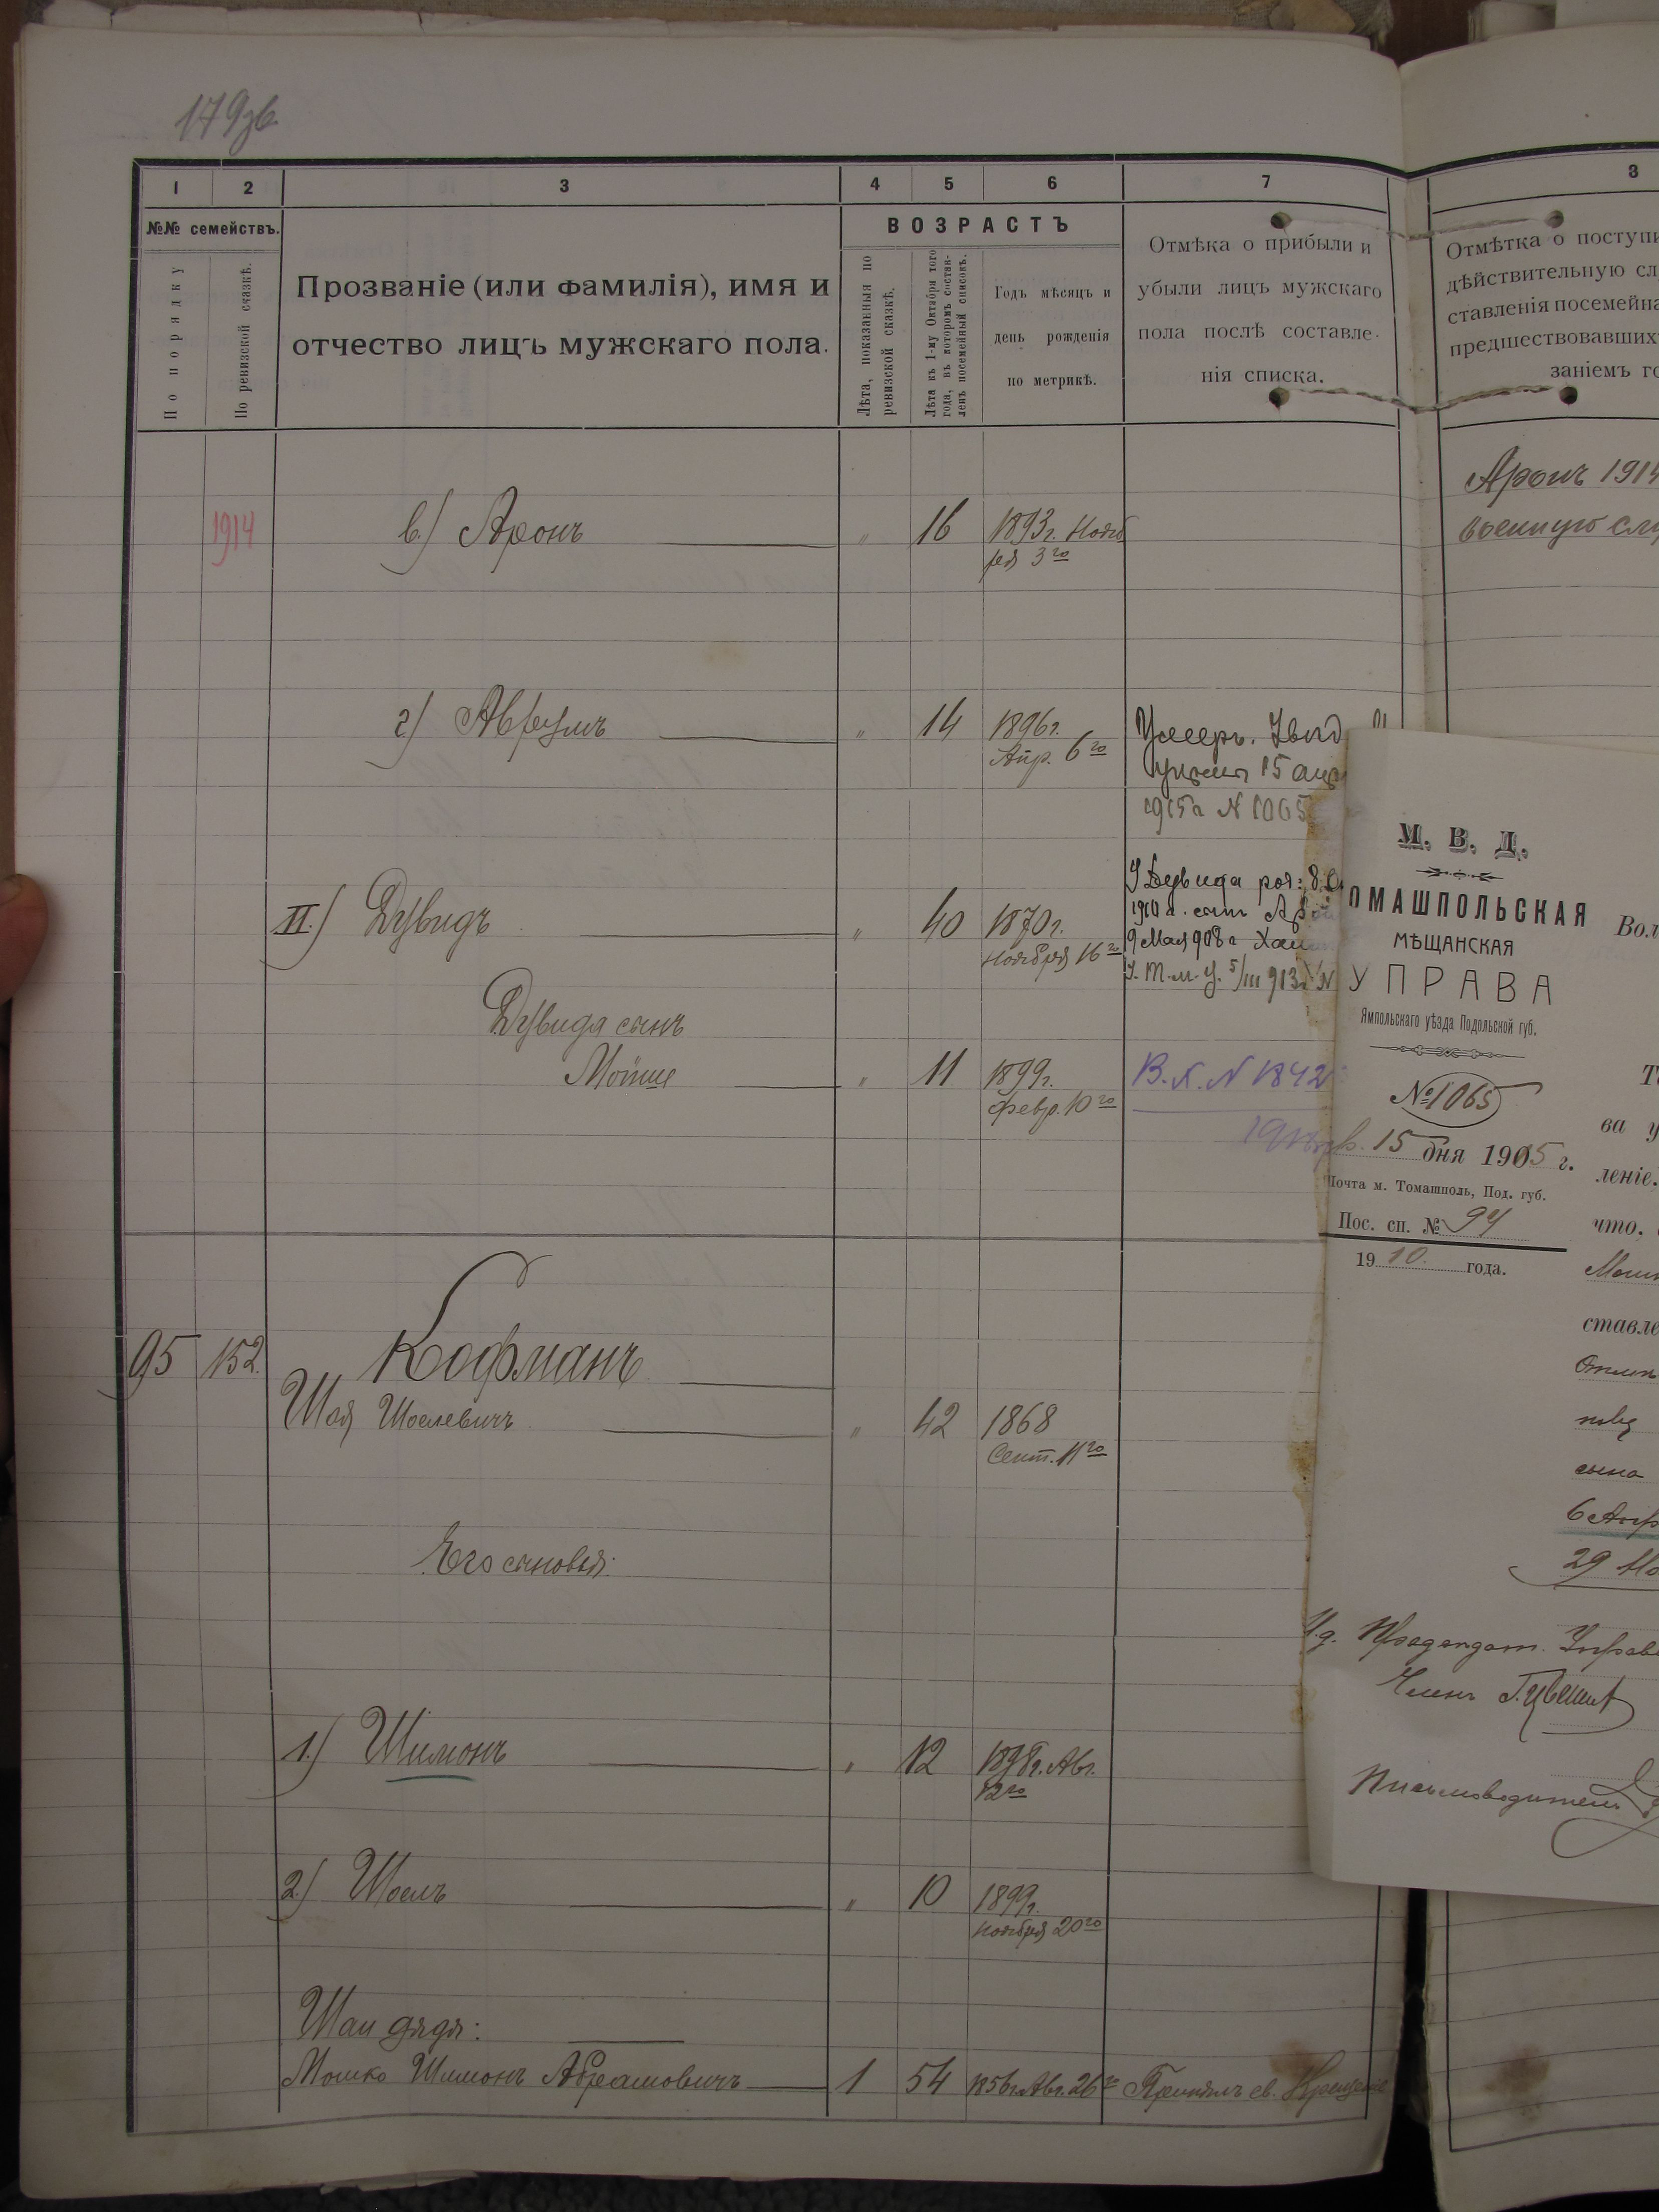 179зв.
1 2 3 4 5 6 7
№№ семействъ.
По порядку
По ревизской сказкѣ.
Прозваніе (или фамилія), имя и
отчество лицъ мужскаго пола.
ВОЗРАСТЪ
Лѣта, показанныя по
ревизской сказкѣ.
Лѣта къ 1-му Октября того
года, въ которомъ состав-
ленъ посемейный списокъ.
Годъ мѣсяцъ и
день рожденія
по метрикѣ.
Отмѣка о прибыли и
убыли лицъ мужскаго
пола послѣ составле-
нія списка.
1914 в.) Аронъ " 16 1893г. Нояб
ря 3го
г.) Аврумъ " 14 1896г.
Апр. 6го
Умеръ.
15
1915г N 1065
II.) Дувидъ " 40 1870г.
ноября 16го
У Дувида род: 8
1910 г. сынъ
9 Мая 908г
У. Т. м. У. 5/III 913г N
Дувида сынъ
Мойше " 11 1899г.
февр. 10го
В. К. N 1842
95 152. Кофманъ
Шая Шоелевичъ " 42 1868
Сент. 11го
Его сыновья:
1.) Шимонъ " 12 1898г. Авг.
12го
2.) Шоелъ " 10 1899г.
ноября 20го
Шаи дядя:
Мошко Шимонъ Абрамовичъ 1 54 1856г. Авг. 26го Принялъ св. Крещеніе
8
Отмѣтка о поступи
дѣйствительную сл
ставленія посемейна
предшествовавших
заніемъ го
Аронъ 1914
военную слу
М. В. Д.
ОМАШПОЛЬСКАЯ
МѢЩАНСКАЯ
УПРАВА
Ямпольскаго уѣзда Подольской губ.
№1065
15 дня 1915 г.
Почта м. Томашполь, Под. губ.
Пос. сп. № 94
1910. года.
Вол
ва у
леніе.
что,
ставле
сына
6 Апр
29
И.д. Предсѣдат. Управы
Членъ
Письмоводитель